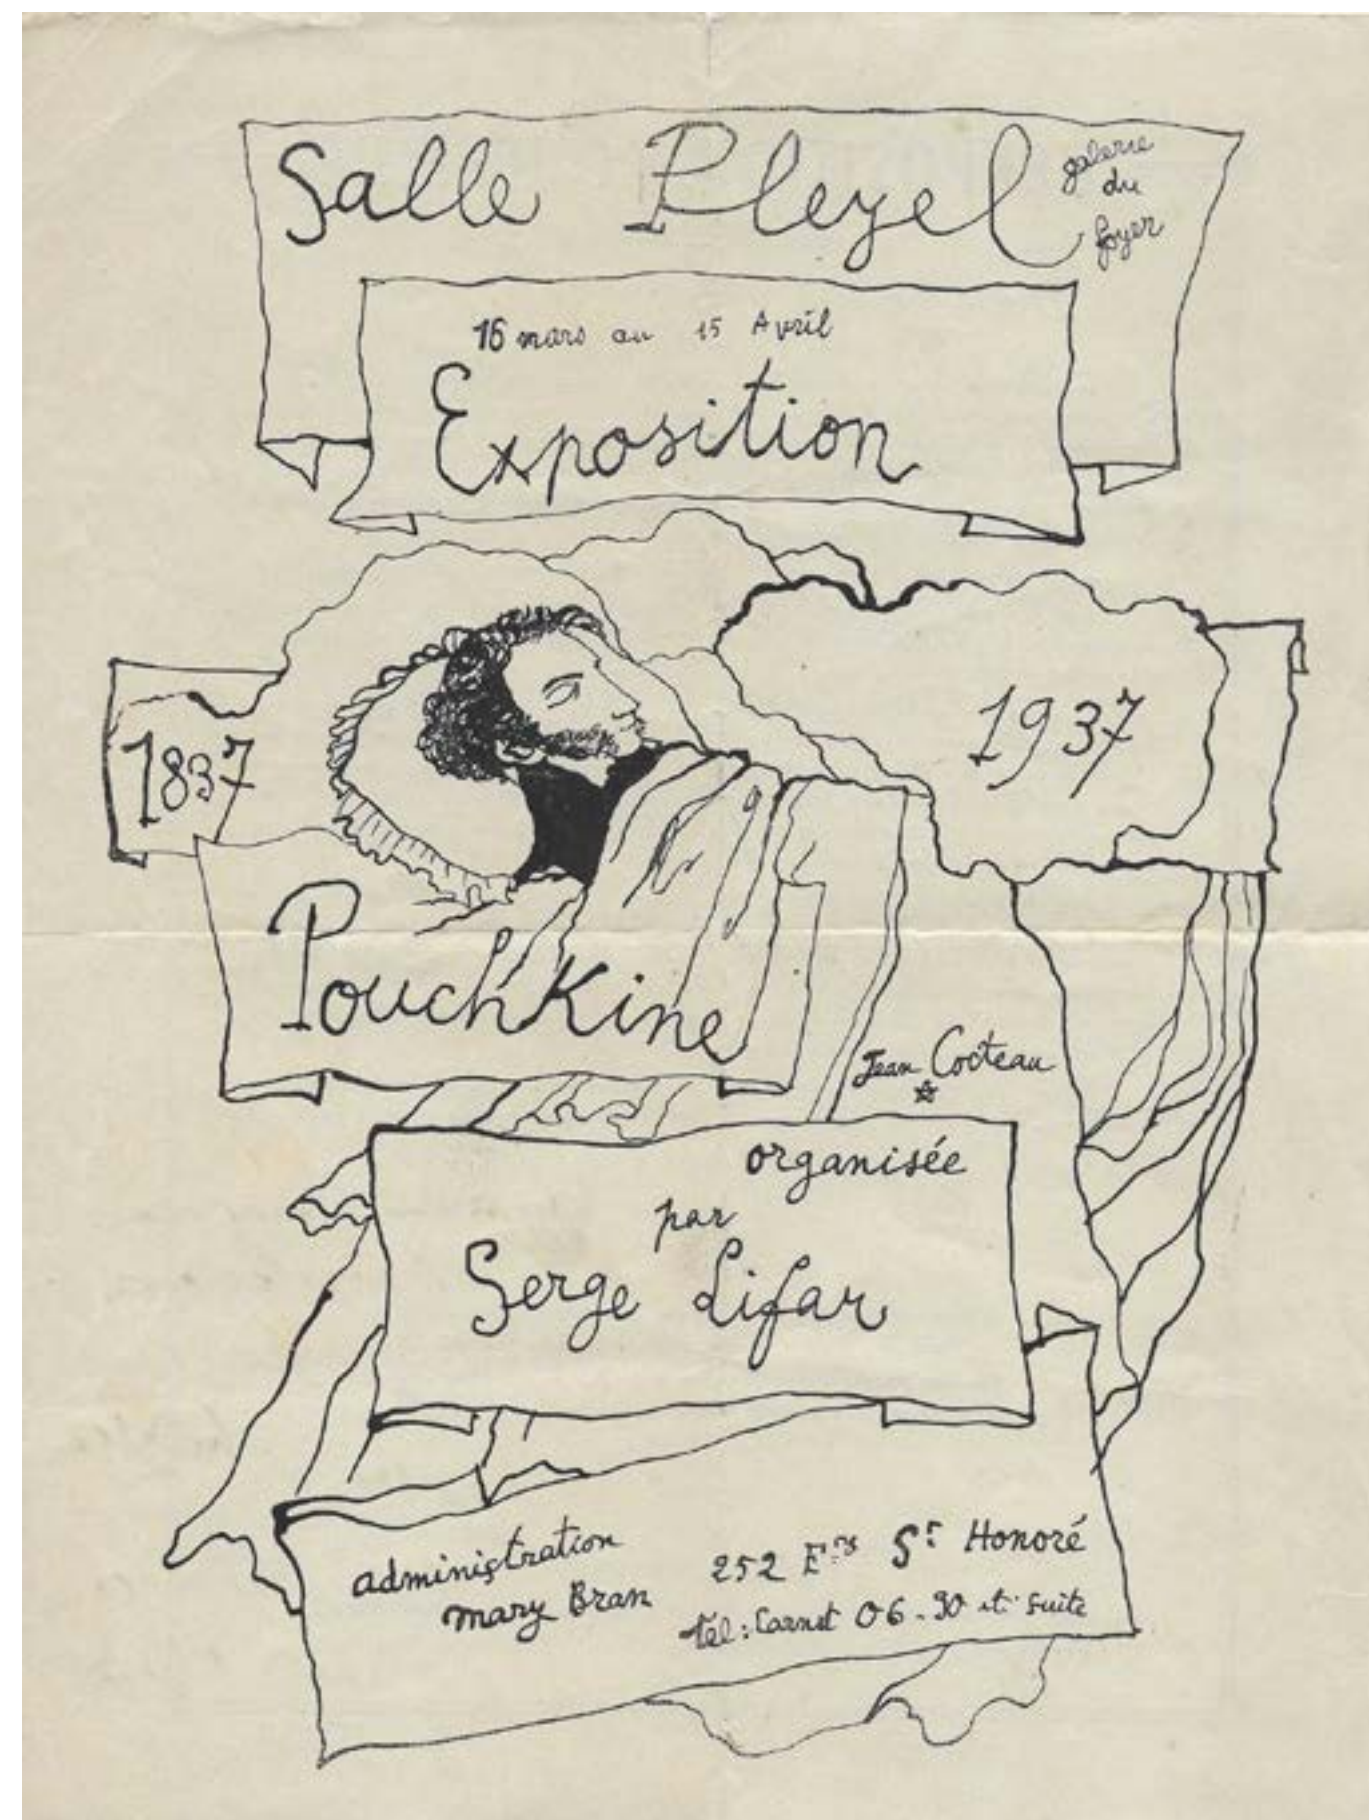 Salle Pleyel
galerie
du
foyer
16 mars au 15 Avril
Exposition
1837
1937
Pouchkine
Jean Cocteau
organisée
par
Serge Lifar
administration
mary Bran
252 Frs St Honoré
Tél: Carnot 06-90 et suite